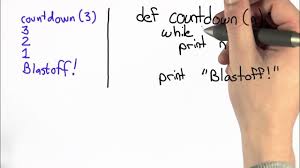 countdown (3)
3
2
1
Blastoff!
def countdown(
while
print
print "Blastoff!"